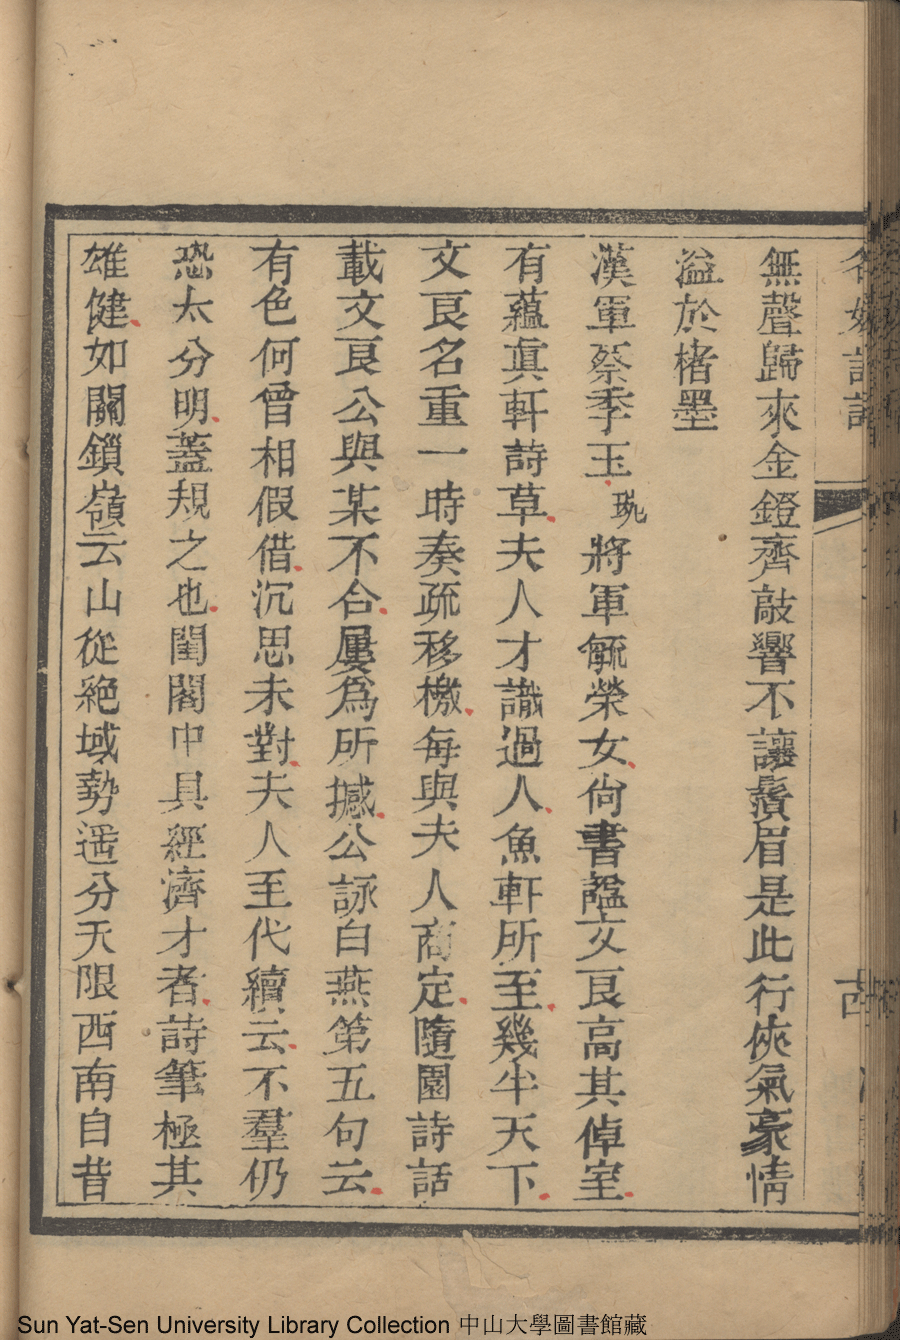 無聲歸來金鐙齊敲響不讓鬚眉是此行俠氣豪情
溢於楮墨
漢軍蔡季玉琬將軍毓榮女尙書諡文良高其倬室
有蘊眞軒詩草夫人才識過人魚軒所至幾半天下
文良名重一時奏疏移檄每與夫人商定隨園詩話
載文良公與某不合屢爲所撼公詠白燕第五句云
有色何曾相假借沉思未對夫人至代續云不羣仍
恐太分明蓋規之也閨閣中具經濟才者詩筆極其
雄健如關鎖嶺云山從絕域勢遥分天限西南自昔
Sun Yat-Sen University Library Collection 中山大學圖書館藏